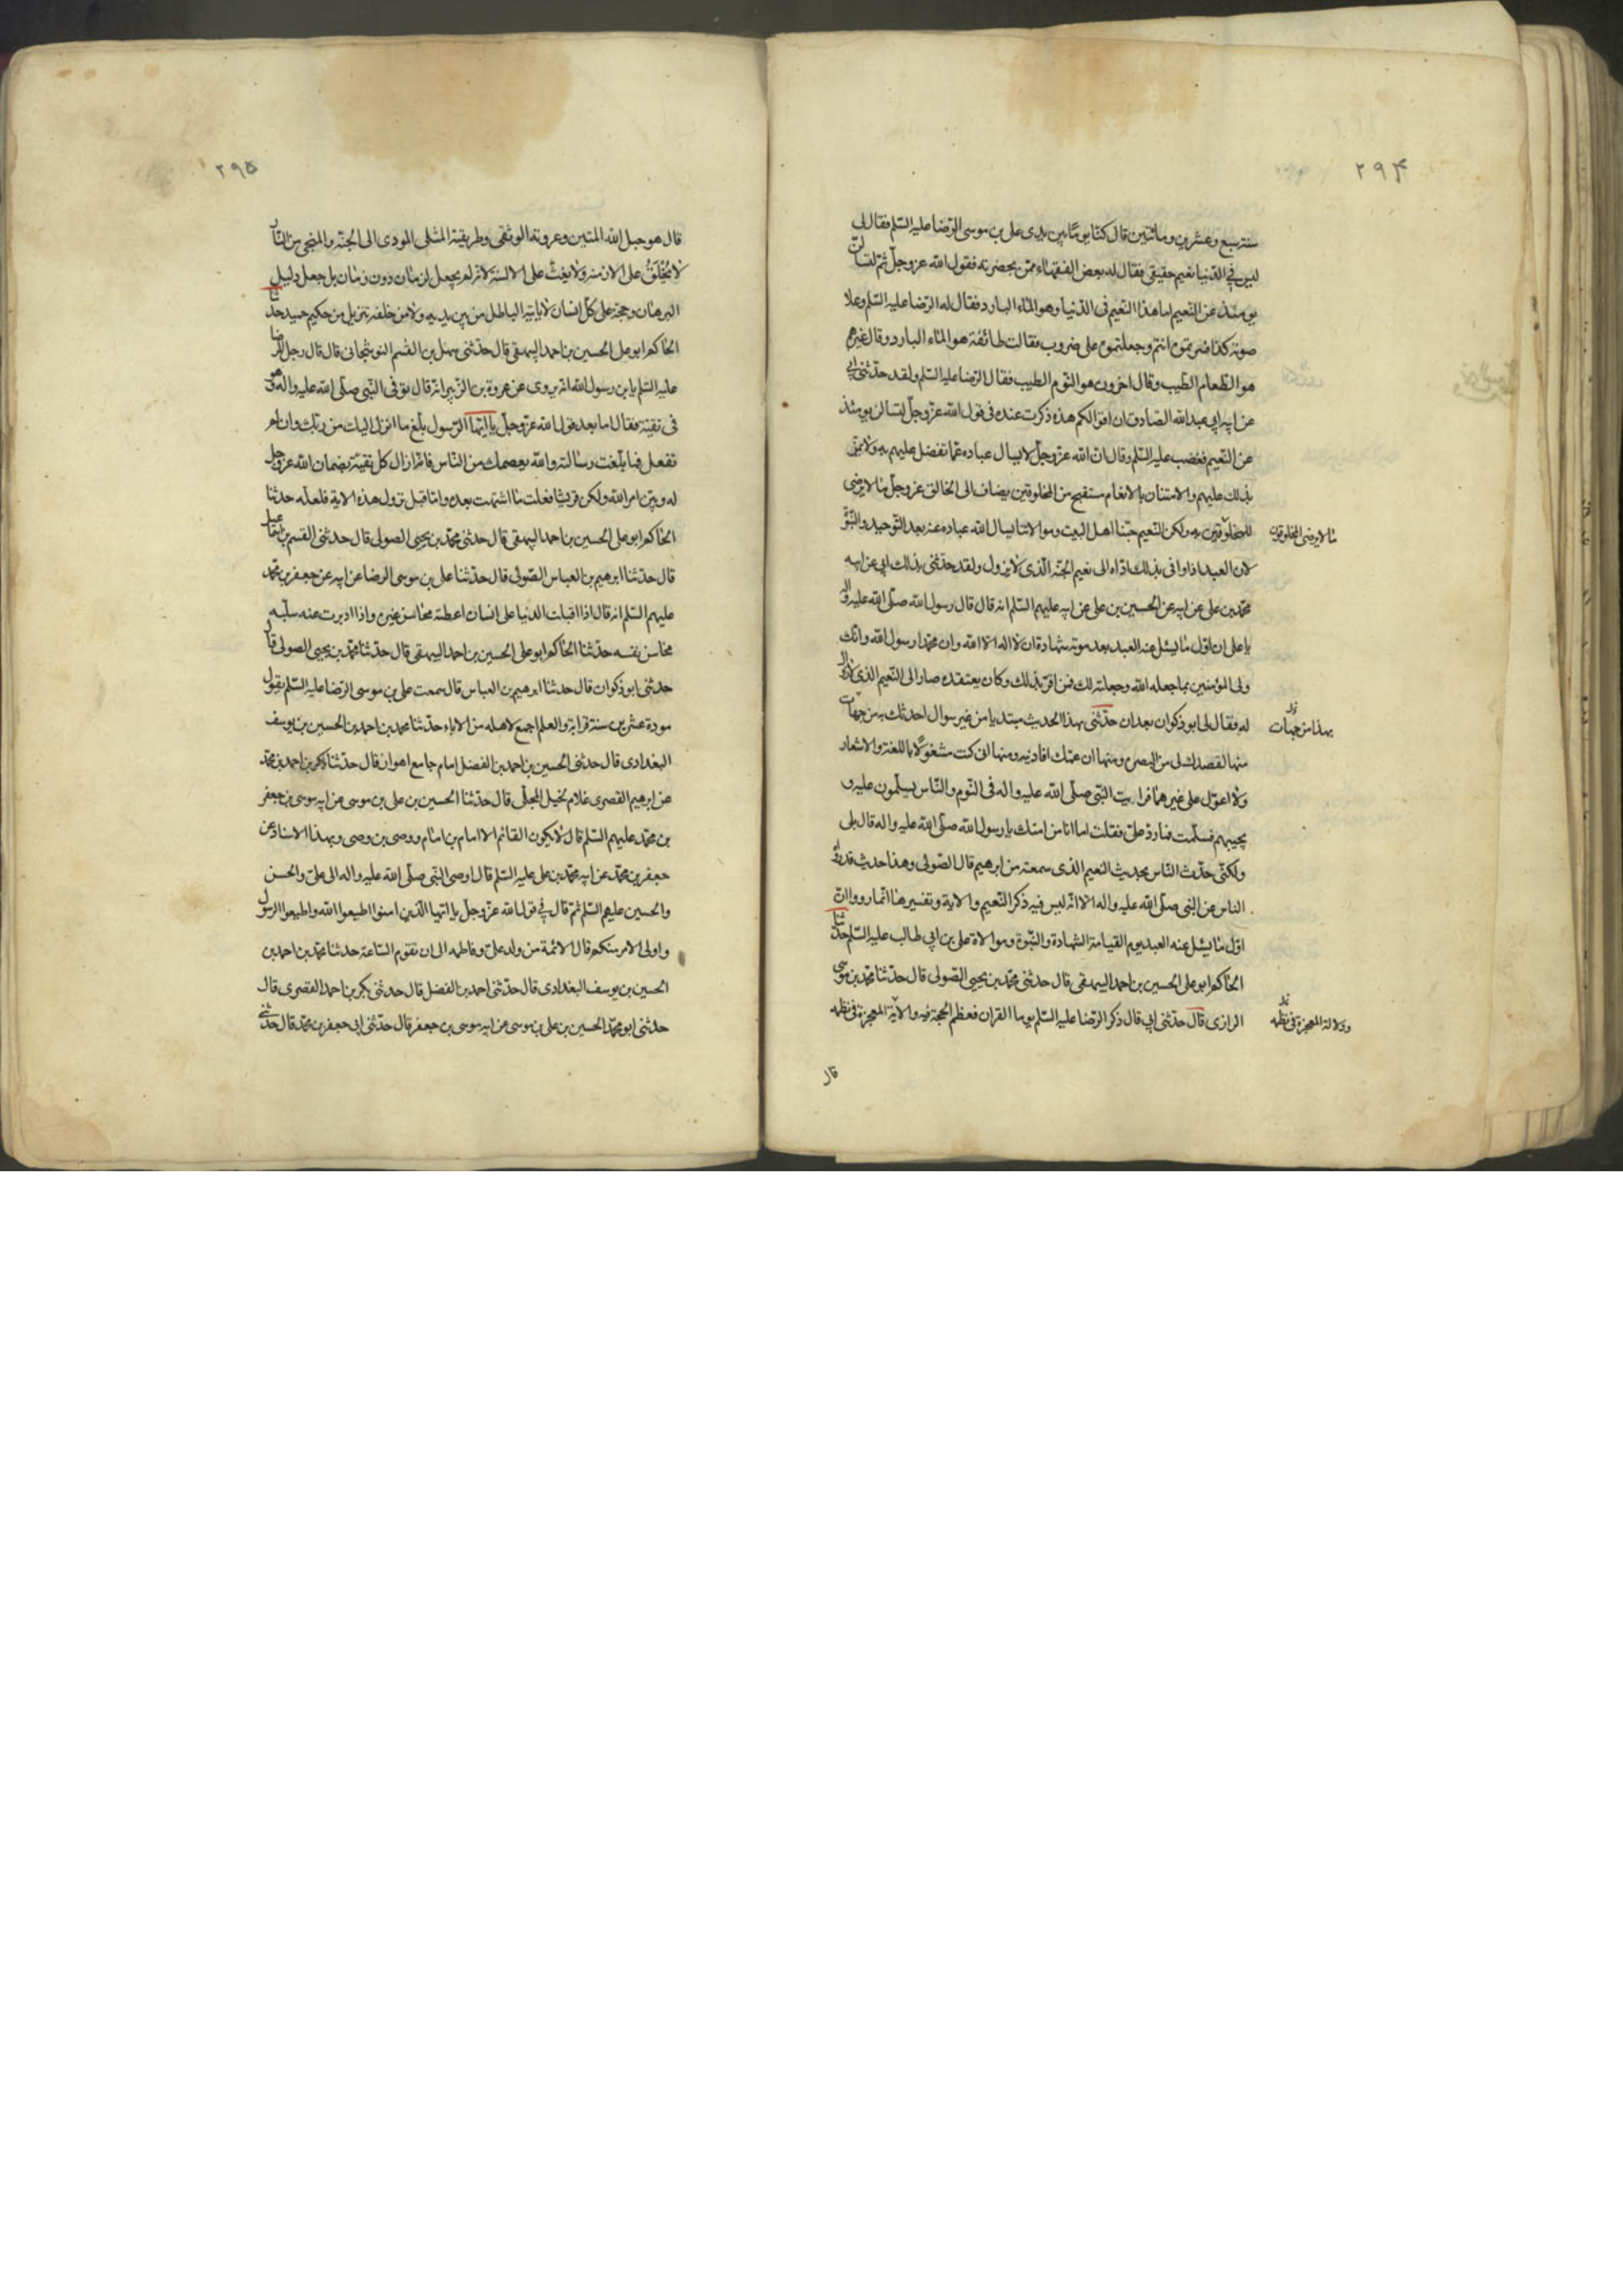 ۲۹۴
سنة سبع وعشرين ومائتين قال كنّا يوما بين يدى على بن موسى الرّضا عليه السّلم فقال لى
ليس فى الدّنيا نعيم حقيقى فقال له بعض الفقهاء ممّن بحضرته فقول الله عز وجلّ ثمّ لتسألنّ
يومئذ عن النّعيم اما هذا النّعيم فى الدّنيا وهو الماء البارد فقال له الرّضا عليه السّلم وعلا
صوته كذا فسّرتموه انتم وجعلتموه على ضروب فقالت طائفة هو الماء البارد وقال غيرهم
هو الطّعام الطّيب وقال اخرون هو النّوم الطيب فقال الرّضا عليه السّلم ولقد حدّثنى ابى
عن ابيه ابى عبد الله الصّادق ان اقوالكم هذه ذكرت عنده فى قول الله عزّ وجلّ لتسالن يومئذ
عن النّعيم فغضب عليه السّلم وقال انّ الله عزّ وجلّ لا يسال عباده عمّا تفضل عليهم به ولا يمنّ
بذلك عليهم والامتنان بالانعام مستقبح من المخلوقين فكيف يضاف الى الخالق عز وجلّ ما لا يرضى
للمخلوقين به ولكن النّعيم حبّنا اهل البيت وموالاتنا يسال الله عباده عنه بعد التّوحيد والنّبوّة
ما لا يرضى المخلوقون
لان العبد اذا وافى بذلك ادّاه الى نعيم الجنّة الّذى لا يزول ولقد حدّثنى بذلك ابى عن ابيه
محمّد بن على عن ابيه عن الحسين بن على عن ابيه عليهم السّلم انه قال قال رسول الله صلّى الله عليه واله
يا على ان اوّل ما يسئل عنه العبد بعد موته شهادة ان لا اله الا الله وان محمّدا رسول الله وانّك
ولى المؤمنين بما جعله الله وجعلته لك فمن اقرّ بذلك وكان يعتقده صار الى النّعيم الذى لا زوال
له وفقال لى ابو ذكوان بعد ان حدّثنى بهذا الحديث مبتديا من غير سوال احدثك به من جهات
بهذا من جهات
منها لقصدك لى من البصرة ومنها ان عمّك افادنيه ومنها انى كنت مشغولا باللغة والاشعار
ولا اعوّل على غيرهما فرايت النّبى صلّى الله عليه واله فى النّوم والنّاس يسلّمون عليه و
يجيبهم فسلّمت فما ردّ علىّ فقلت اما انا من امتك يا رسول الله صلّى الله عليه واله قال بلى
ولكنّى حدّث النّاس بحديث النّعيم الذى سمعته من ابرهيم قال الصّولى وهذا حديث قد رواه
النّاس عن النّبى صلّى الله عليه واله الا انّه ليس فيه ذكر النّعيم والاية وتفسيرها انّما رووا انّ
اوّل ما يسئل عنه العبد يوم القيامة الشّهادة والنّبوة وموالاة على بن ابى طالب عليه السّلم حدّثنا
الحاكم ابو على الحسين بن احمد البيهقى قال حدثنى محمّد بن يحيى الصّولى قال حدّثنا محمّد بن موسى
الرازى قال حدّثنى ابى قال ذكر الرّضا عليه السّلم يوما القران فعظّم الحجة فيه والاية المعجزة فى نظمه
ودلالة المعجزة فى نظمه
قال
۲۹۵
قال هو حبل الله المتين وعروته الوثقى وطريقته المثلى المودى الى الجنّة والمنجى من النّار
لا يخلق على الازمنة ولا يغثّ على الالسنة لانّه لم يجعل لزمان دون زمان بل جعل دليل
البرهان وحجة على كلّ انسان لا ياتيه الباطل من بين يديه ولا من خلفه تنزيل من حكيم حميد حدّثنا
الحاكم ابو على الحسين بن احمد البيهقى قال حدّثنى سهل بن القسم النوشجانى قال قال رجل للرّضا
عليه السّلم يا بن رسول الله انّه يروى عن عروة بن الزّبير انّه قال توفى النّبى صلّى الله عليه واله وهو
فى تقيّة فقال اما بعد قول الله عزّ وجلّ يا ايّها الرّسول بلّغ ما انزل اليك من ربّك وان لم
تفعل فما بلّغت رسالته والله يعصمك من النّاس فانّه ازال كل تقيّة بضمان الله عزّ وجل
له وبيّن امر الله ولكن قريشا فعلت ما اشتهت بعده واما قبل نزول هذه الاية فلعلّه حدثنا
الحاكم ابو على الحسين بن احمد البيهقى قال حدثنى محمّد بن يحيى الصولى قال حدثنى القسم بن اسمعيل
قال حدّثنا ابرهيم بن العباس الصّولى قال حدّثنا على بن موسى الرضا عن ابيه عن جعفر بن محمّد
عليهم السّلم انه قال اذا اقبلت الدنيا على انسان اعطته محاسن غيره واذا ادبرت عنه سلبه
محاسن نفسه حدّثنا الحاكم ابو على الحسين بن احمد البيهقى قال حدّثنا محمّد بن يحيى الصولى قال
حدثنى ابو ذكوان قال حدثنا ابرهيم بن العباس قال سمعت على بن موسى الرّضا عليه السّلم يقول
مودة عشرين سنة قرابة والعلم اجمع لاهله من الاباء حدّثنا محمد بن احمد بن الحسين بن يوسف
البغدادى قال حدثنى الحسين بن احمد بن الفضل امام جامع اهواز قال حدّثنا بكر بن احمد بن محمّد
بن ابرهيم القصرى غلام لخيل المجلّى قال حدّثنا الحسين بن على بن موسى عن ابيه موسى بن جعفر
بن محمّد عليهم السّلم قال لا يكون القائم الا امام بن امام ووصى بن وصى وبهذا الاسناد عن
جعفر بن محمّد عن ابيه محمّد بن على عليه السّلم قال اوصى النّبى صلّى الله عليه واله الى علىّ والحسن
والحسين عليهم السّلم ثمّ قال فى قول الله عزّ وجلّ يا ايّها الذّين امنوا اطيعوا الله واطيعوا الرسول
واولى الامر منكم قال الائمة من ولد علىّ وفاطمه الى ان تقوم السّاعة حدثنا محمّد بن احمد بن
الحسين بن يوسف البغدادى قال حدّثنى احمد بن الفضل قال حدثنى بكر بن احمد القصرى قال
حدثنى ابو محمّد الحسين بن على بن موسى عن ابيه موسى بن جعفر قال حدّثنى ابى جعفر بن محمّد قال حدّثنى